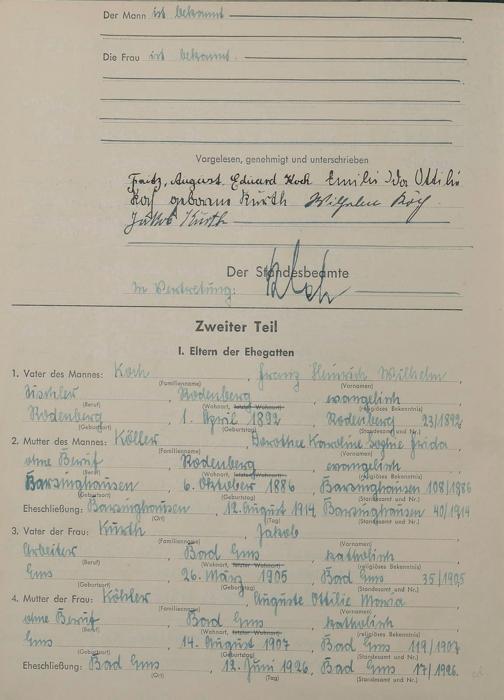 Der Mann ist bekannt
Die Frau ist bekannt.
Vorgelesen, genehmigt und unterschrieben
Fritz, August Eduard Koch Emilie Ida Ottilie
Koch geborene Kurth Wilhelm Koch
Jakob Kurth
Der Standesbeamte
In Vertretung:
Zweiter Teil
I. Eltern der Ehegatten
1. Vater des Mannes: Koch, Franz Heinrich Wilhelm,
(Familienname) (Vornamen)
Tischler, Rodenberg, evangelisch
(Beruf) (Wohnort, letzter Wohnort) (religiöses Bekenntnis)
Rodenberg, 1. April 1892, Rodenberg 23/1892
(Geburtsort) (Geburtstag) (Standesamt und Nr.)
2. Mutter des Mannes: Köller, Dorothee Karoline Sophie Frida,
(Familienname) (Vornamen)
ohne Beruf, Rodenberg, evangelisch
(Beruf) (Wohnort, letzter Wohnort) (religiöses Bekenntnis)
Barsinghausen, 6. Oktober 1886, Barsinghausen 108/1886
(Geburtsort) (Geburtstag) (Standesamt und Nr.)
Eheschließung: Barsinghausen, 12. August 1914, Barsinghausen 40/1914
(Ort) (Tag) (Standesamt und Nr.)
3. Vater der Frau: Kurth, Jakob,
(Familienname) (Vornamen)
Arbeiter, Bad Ems, katholisch
(Beruf) (Wohnort, letzter Wohnort) (religiöses Bekenntnis)
Ems, 26. März 1905, Bad Ems 35/1905
(Geburtsort) (Geburtstag) (Standesamt und Nr.)
4. Mutter der Frau: Köhler, Auguste Ottilie Maria,
(Familienname) (Vornamen)
ohne Beruf, Bad Ems, katholisch
(Beruf) (Wohnort, letzter Wohnort) (religiöses Bekenntnis)
Ems, 14. August 1907, Bad Ems 119/1907
(Geburtsort) (Geburtstag) (Standesamt und Nr.)
Eheschließung: Bad Ems, 12. Juni 1926, Bad Ems 17/1926.
(Ort) (Tag) (Standesamt und Nr.)